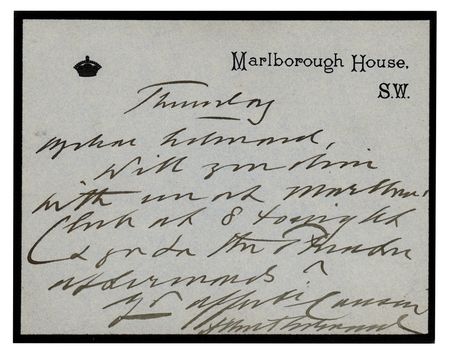 Marlborough House,
S.W.
Thursday
My dear Edward,
Will you dine
with me at Marlboro'
Club at 8 tonight
& go to the Theatre
afterwards?
Yr affecte Cousin